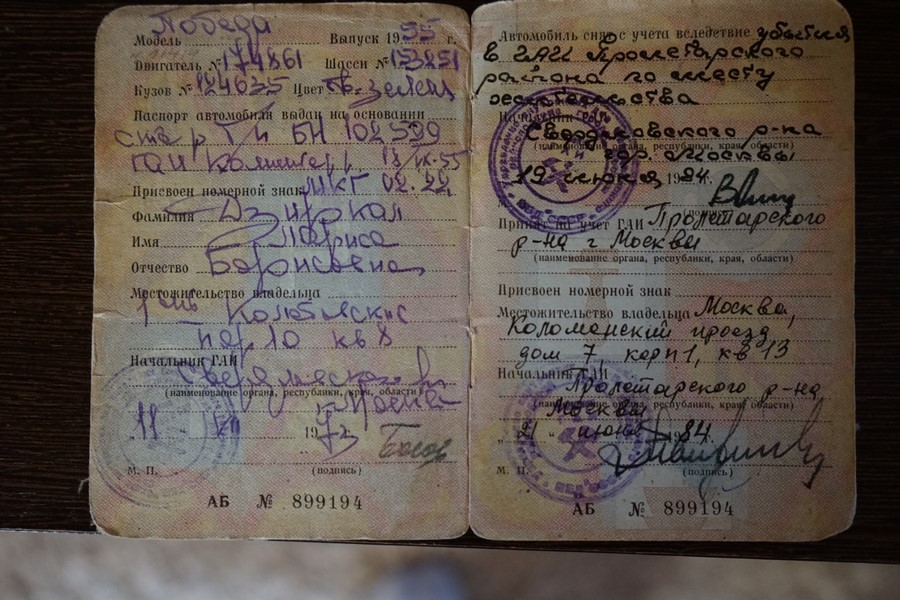 Победа
Модель Выпуск 1955 г.
Двигатель № 174861 Шасси № 153851
Кузов № 124635 Цвет Тв. зелен
Паспорт автомобиля выдан на основании
БН 102599
ГАИ 55
Присвоен номерной знак МКГ 02.22
Фамилия Дзиркал
Имя Лариса
Отчество Борисовна
Местожительство владельца
пер 10 кв 8
Начальник ГАИ
(наименование органа, республики, края, области)
11 1973
М. П. (подпись)
АБ № 899194
Автомобиль снят с учета вследствие убытия
в ГАИ Пролетарского
района по месту
жительства
Начальник
Свердловского р-на
(наименование органа, республики, края, области)
гор. Москвы
19 июня 1984.
Принят на учет ГАИ Пролетарского
р-на г Москвы
(наименование органа, республики, края, области)
Присвоен номерной знак
Местожительство владельца Москва,
Коломенский проезд
дом 7, корп 1, кв 13
Начальник ГАИ
Пролетарского р-на
(наименование органа, республики, края, области)
Москвы
21 июня 84.
М. П. (подпись)
АБ № 899194